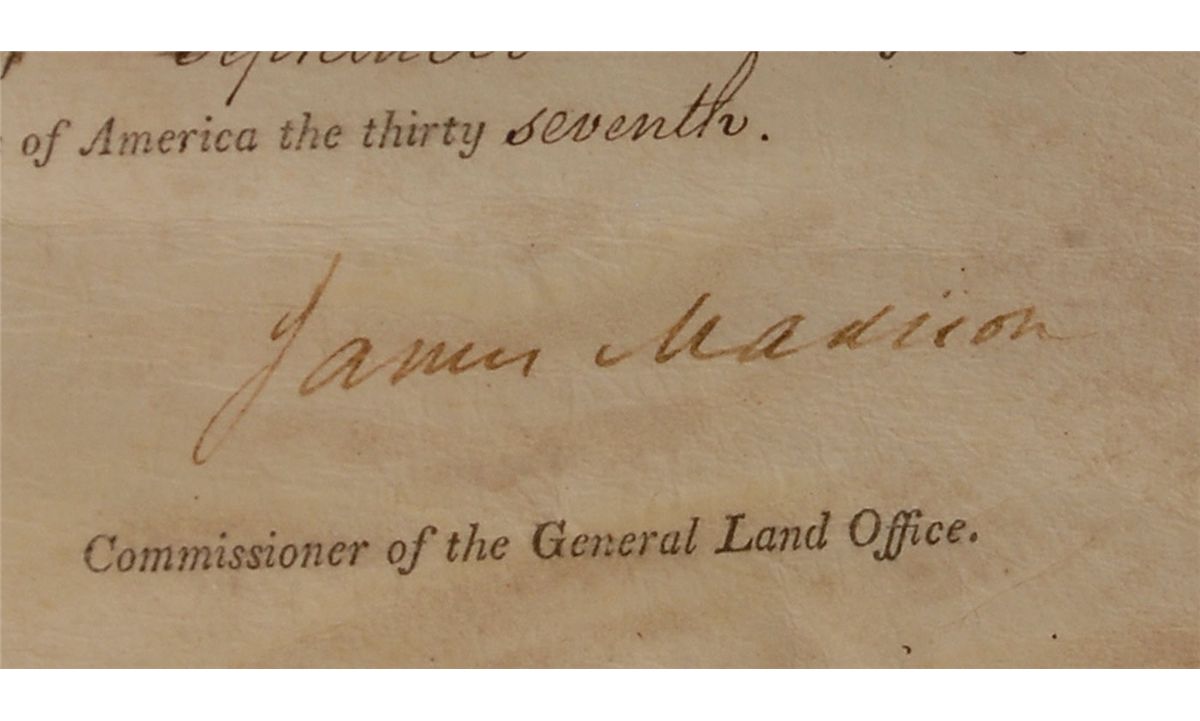 September
of America the thirty seventh.
James Madison
Commissioner of the General Land Office.